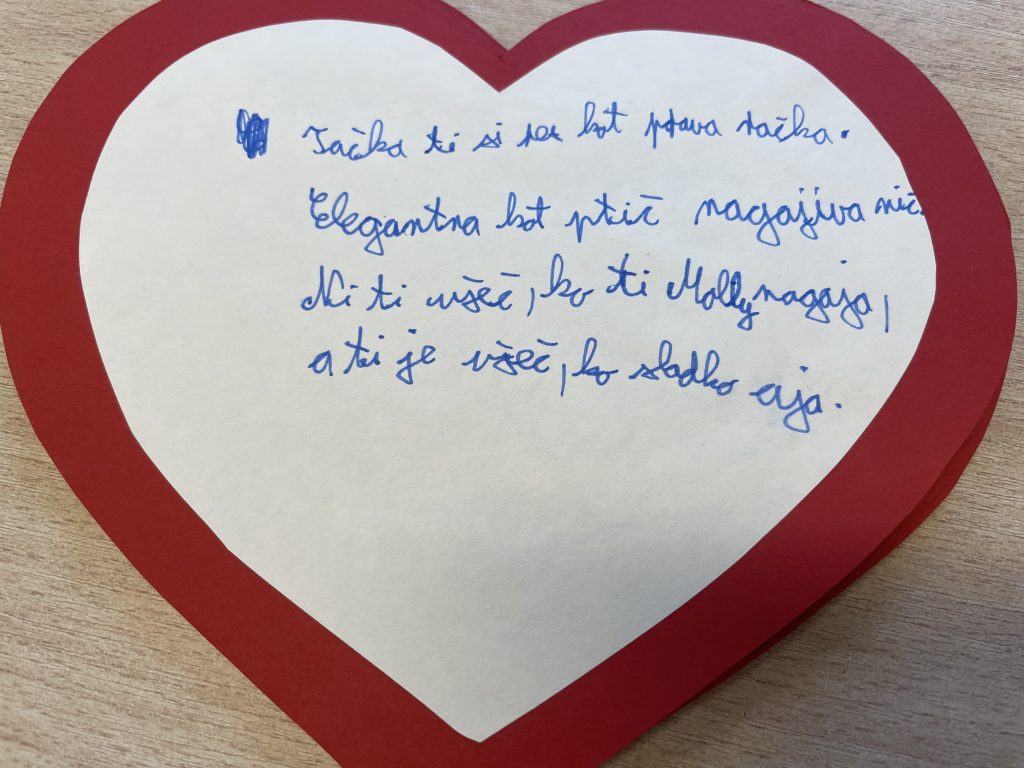 Tačka ti si res kot prava račka.
Elegantna kot ptič nagajiva nič.
Ni ti všeč, ko ti Molly nagaja,
a ti je všeč, ko sladko aja.